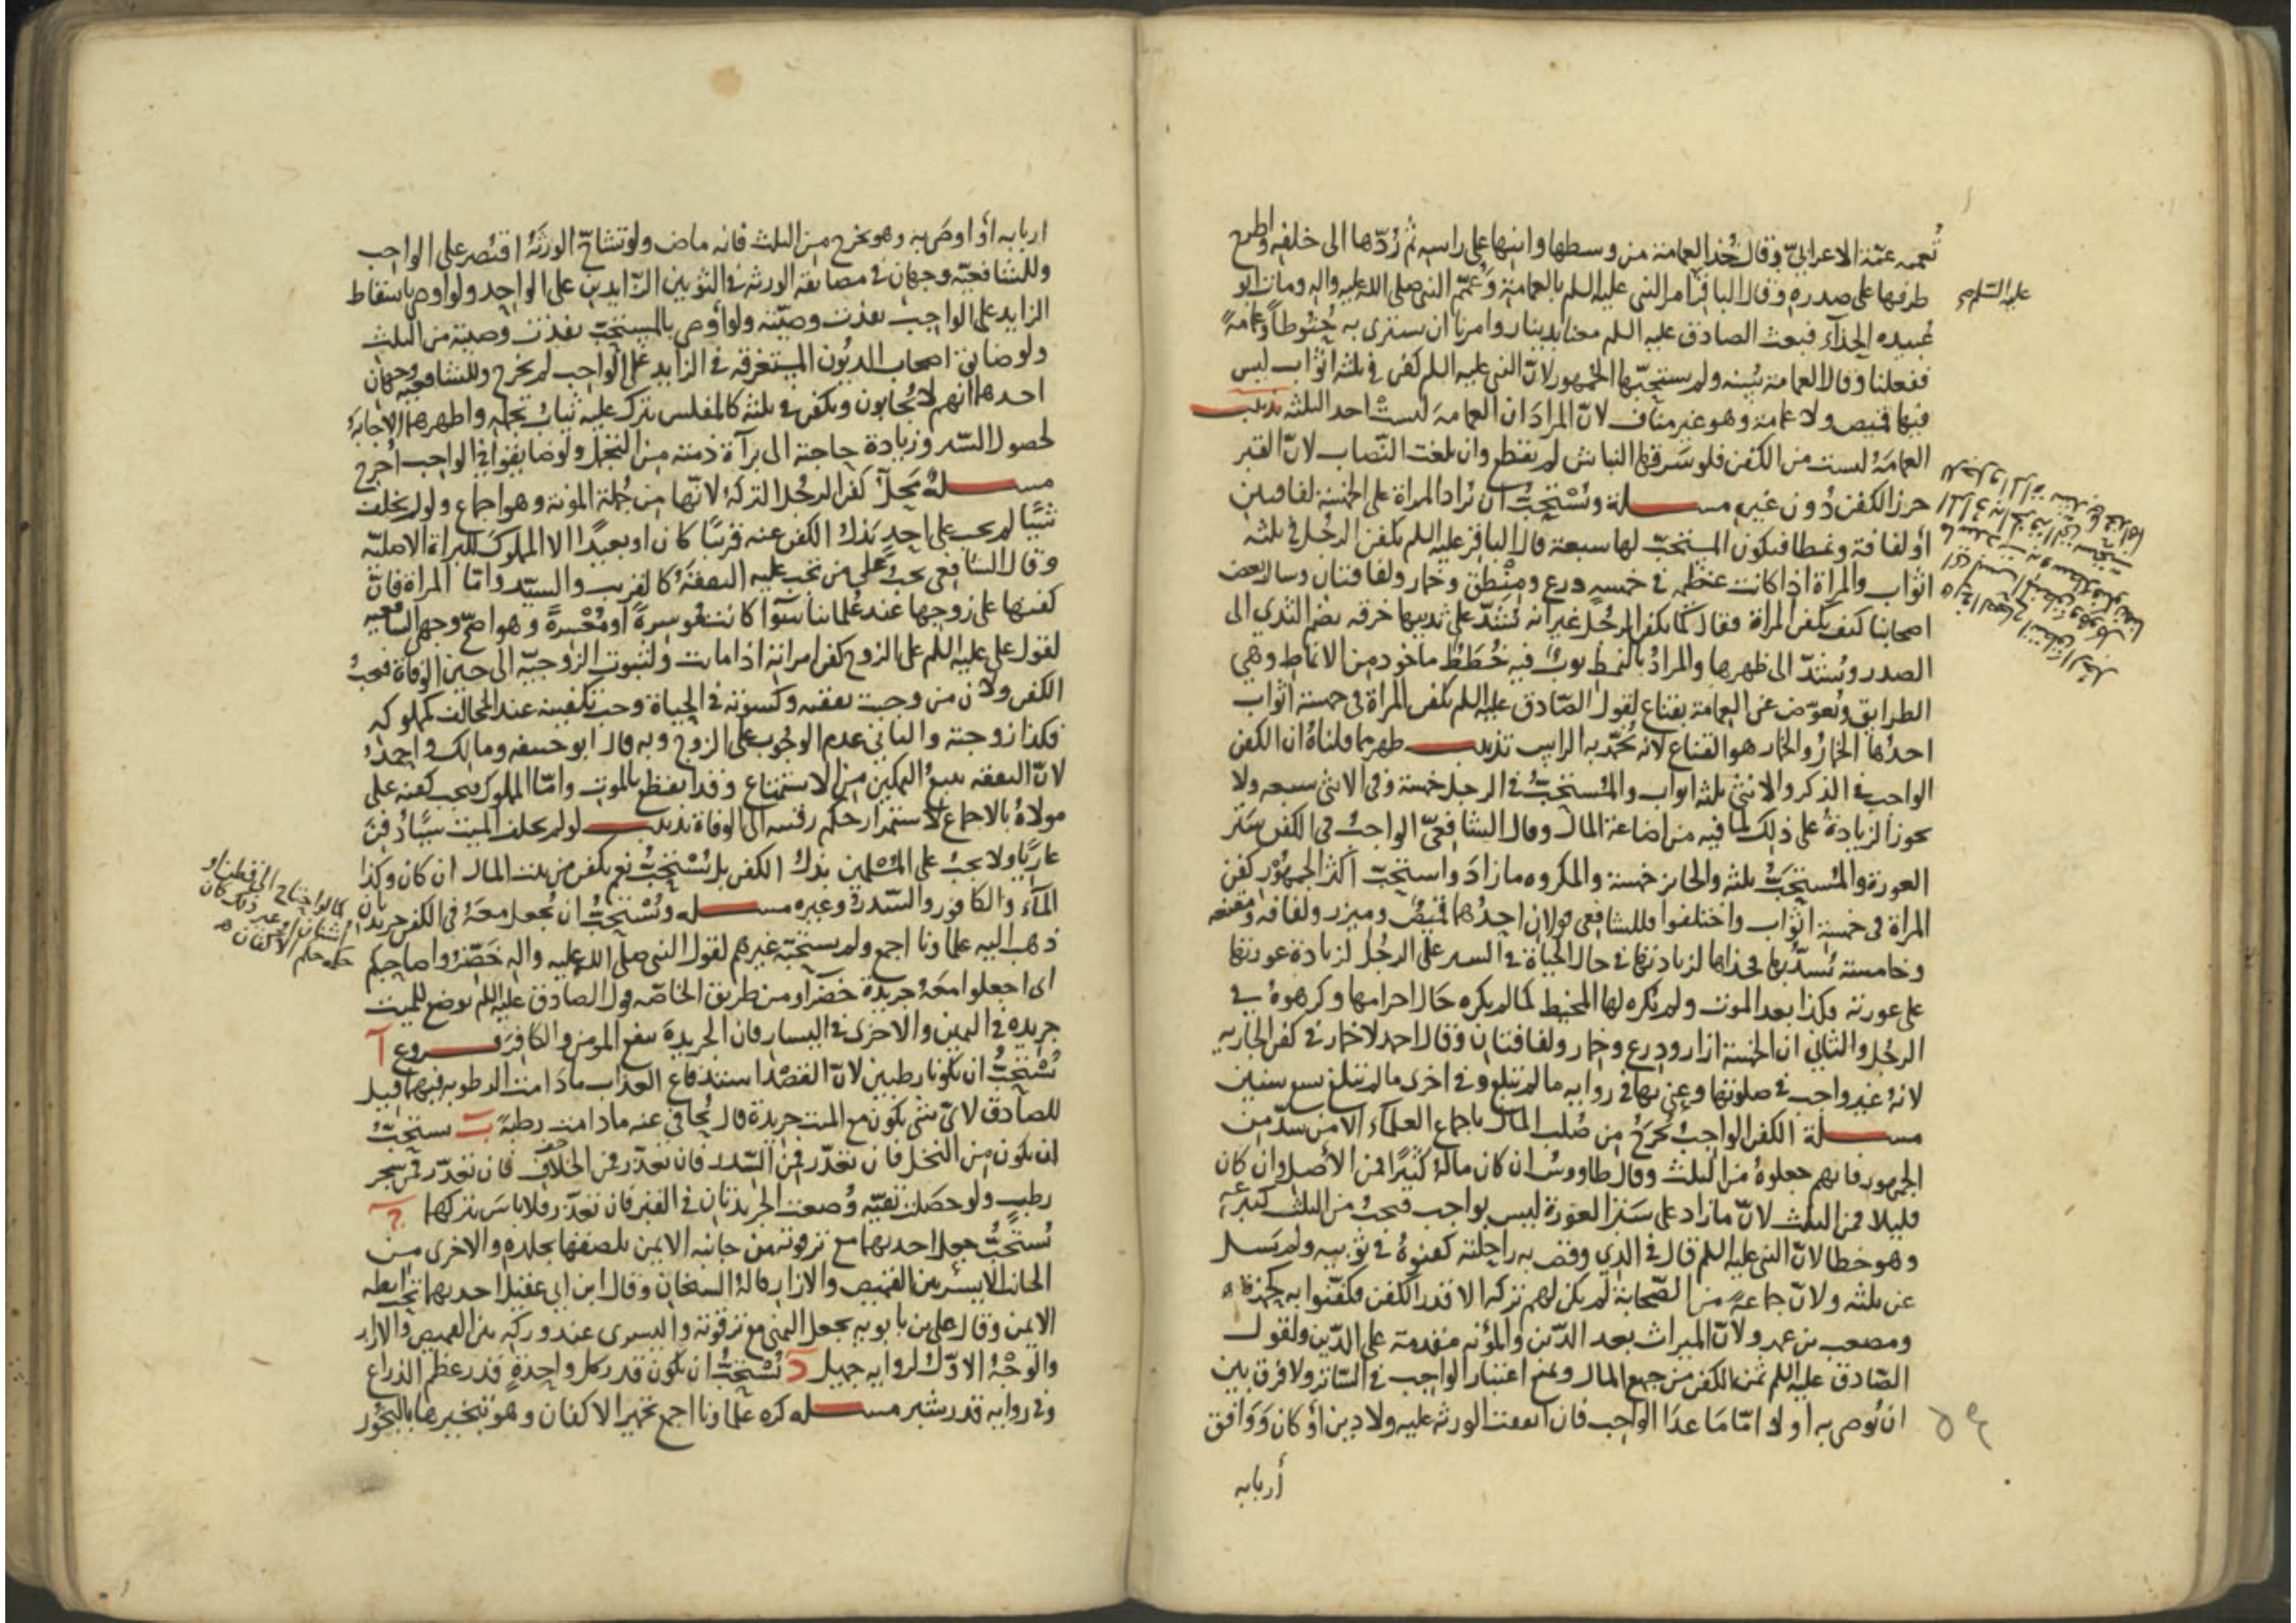 تُعممه عمّة الاعرابيّ وقال خُذ العمامة من وسطها وانشرها على راسه ثم رُدّها الى خلفه واطرح
طرفيها على صدره وقال الباقر امر النبي عليه السلم بالعمامة وعُمّم النبي صلى الله عليه واله ومات ابو
عليه السّلم
عُبيده الحذّاء فبعث الصادق عليه السلم معنا بدينار وامرنا ان نشتري به حَنُوطاً وعمامةً
ففعلنا وقال العمامة سُنّة ولم يستحبّها الجمهور لانّ النبي عليه السلم كفن في ثلثة اثواب ليس
فيها قميص ولا عمامة وهو غير مناف لانّ المراد ان العمامة ليست احد الثلثة تذنيب
العمامَة ليست من الكفن فلو سَرقها النباش لم يقطع وان بلغت النّصاب لانّ القبر
حرز الكفن دُون غيره مسلة ويُستحبُّ ان تُزاد المراة على الخمسة لفافتين
أو لفافة ونمطا فيكون المستحبّ لها سبعة قال الباقر عليه السلم يكفن الرجُل في ثلثة
اثواب والمراة اذا كانت عظيمه في خمسه درع ومِنْطق وخمار ولفافتان وسال بعض
اصحابنا كيف يكفن المراة فقال كما يكفن الرجُل غير انه تُشَدّ على ثدييها خرقه يضم الثدي الى
الصدر وتُشدّ الى ظهرها والمرادُ بالنمط ثوبٌ فيه خُطَطٌ ماخوذ من الانماط وهي
الطرايق ويُعوّض عن العمامة بقناع لقول الصّادق عليه السلم تكفن المراة في خمسة اثواب
احدُها الخمارُ والخمار هو القناع لانه يُخمّر به الراس تذنيب ظهر مما قلناهُ ان الكفن
الواجب في الذكر والانثى ثلثه اثواب والمُستحبُّ في الرجل خمسة وفي الانثى سبعه ولا
يجوز الزيادةُ على ذلك لما فيه من اضاعة المال وقال الشافعيّ الواجبُ في الكفن سَتر
العورة والمُستحبُّ ثلثه والجايز خمسة والمكروه ما زادَ واستحبّ اكثر الجمهُور كفن
المراة في خمسة اثواب واختلفوا فللشافعي قولان احدُهما قميصٌ وميزر ولفافه ومقنعه
وخامسته تُشدّ بها فخذاها لزيادتها في حال الحياة في الستر على الرجُل لزيادة عورتها
على عورته فكذا بعد الموت ولم تُكره لها المخيط كما لم يكره حَال احرامها وكرهوهُ في
الرجُل والثاني ان الخمسة ازار ودرع وخمار ولفافتان وقال احمد لا خمار في كفن الجاريه
لانهُ غير واجب في صلوتها وعنى بها في روايه ما لم تبلغ وفي اخرى ما لم تبلغ تسع سنين
مسلة الكفن الواجبُ يُخرَجُ من صُلب المال باجماع العلمآء الا من شذّ من
الجمهور فانهم جعلوهُ من الثلث وقال طاووسُ ان كان مالهُ كثيرًا فمن الأصل وان كان
قليلا فمن الثلث لانّ ما زاد على سَتر العورة ليس بواجب فيجبُ من الثلث كتبرعه
وهو خطا لانّ النبي عليه السلم قال في الذي وقصت به راحلته كفنوهُ في ثوبيه ولم يَسل
عن ثلثه ولانّ جماعةً من الصّحابة لم يكن لهم تركه الا قدر الكفن فكفّنوا به كحمزة
ومصعب بن عمير ولانّ الميراث بعد الدّين والمؤنه متقدمة على الدّين ولقول
الصّادق عليه السلم ثمن الكفن من جميع المال ويمنع اعتبار الواجب في السّاتر ولا فرق بين
ان يُوصي به او لا امّا مَا عدا الواجب فان اتفقت الورثه عليه ولا دين أو كان ووَافق
أربابه
اربابه أو اوصى به وهو يخرج من الثلث فانه ماض ولو تشاحّ الورثةُ اقتُصر على الواجب
وللشافعيّه وجهان في مضايقه الورثه في الثوبين الزّايدين على الواحد ولو اوصى باسقاط
الزايد على الواجب نفذت وصيّته ولو أوصى بالمستحبّ نفذت وصيته من الثلث
ولو ضايق اصحاب الديُون المستغرقه في الزايد على الواجب لم يخرج وللشافعيه وجهان
احدهما انهم لا يُجابون ويكفن في ثلثه كالمفلس يترك عليه ثياب تجمله واظهرهما الاجابةُ
لحصول السّتر وزيادة حاجته الى برآة ذمته من التجمّل ولو ضايقوا في الواجب اُخرج
مسلةُ محلّ كفن الرجُل التركةُ لانّها من جُملة المؤنه وهو اجماع ولو لم يخلف
شيًا لم يجب على احدٍ بَذلُ الكفن عنه قريبًا كان او بعيدًا الا المملوك للبراة الاصليّه
وقال الشافعي يجبُ على من تجب عليه النفقهُ كالقريب والسيّد وامّا المراة فانّ
كفنها على زوجها عند عُلماينا سَوآ كانت مُوسرةً او مُعْسِرةً وهو اصحّ وجهي الشافعيه
لقول علي عليه السلم على الزوج كفن امراته اذا ماتت ولثبوت الزوجيّه الى حين الوفاة فيجبُ
الكفن ولان من وجبت نفقته وكسوته في الحياة وجب تكفينه عند المخالف كمملوكه
فكذا زوجته والثاني عدم الوجُوب على الزوج وبه قال ابو حنيفه ومالك واحمدُ
لانّ النفقه تتبعُ التمكين من الاستمتاع وقد انقطع بالموت وامّا المملوك فيجب كفنه على
مولاهُ بالاجماع لاستمرار حكم رقه الى الوفاة تذنيب لو لم يخلف الميت شيًا دُفنَ
عاريًا ولا يجبُ على المُسْلمين بذلُ الكفن بل يُسْتحبُّ نعم يكفن من بيت المال ان كان وكذا
المآء والكافور والسّدرُ وغيره مسله ويُسْتحبُّ ان يُجعل معَهُ في الكفن جريدتان
ذهب اليه علماونا اجمع ولم يستحبّه غيرهم لقول النبي صلّى الله عليه واله خَضّرُوا صاحبكم
اى اجعلوا معَهُ جريدة خضرآ ومن طريق الخاصّه قول الصادق عليه السلم يوضع للميت
جريده في اليمين والاخرى في اليسار فان الجريدة تنفع المومن والكافر فروع آ
يُسْتحبُّ ان تكونا رطبين لانّ القصْد استدفاع العذاب مادَامت الرطوبه فيهما قيل
للصادق لاىّ شيء يكون مع الميت جريدة قال يُجافي عنه مادامت رطبةً ب يستحبّ
ان يكون من النخل فان تعذّر فمن السّدر فان تعذّر فمن الخلاف فان تعذّر فمن شجر
رطب ولو حصَلت تقيّه وُضعت الجريدتان في القبر فان تعذّر فلا باسَ بتركها ج
يُستحبُّ جعل احديهما مع ترقوته من جانبه الايمن يلصقها بجلده والاخرى من
الجانب الايسر بين القميص والازار قالهُ الشيخان وقال ابن ابي عقيل احديهما تحت ابطه
الايمن وقال علي بن بابويه يجعل اليمنى مع ترقوته واليسرى عند وركه بين القميص والازار
والوجْهُ الاوّل لروايه جميل د يُسْتحبُّ ان يكون قدر كل واحدةٍ قدر عظم الذراع
وفي روايه قدر شبر مسله كره علماونا اجمع تجمير الاكفان وهو تبخيرها بالبخُور